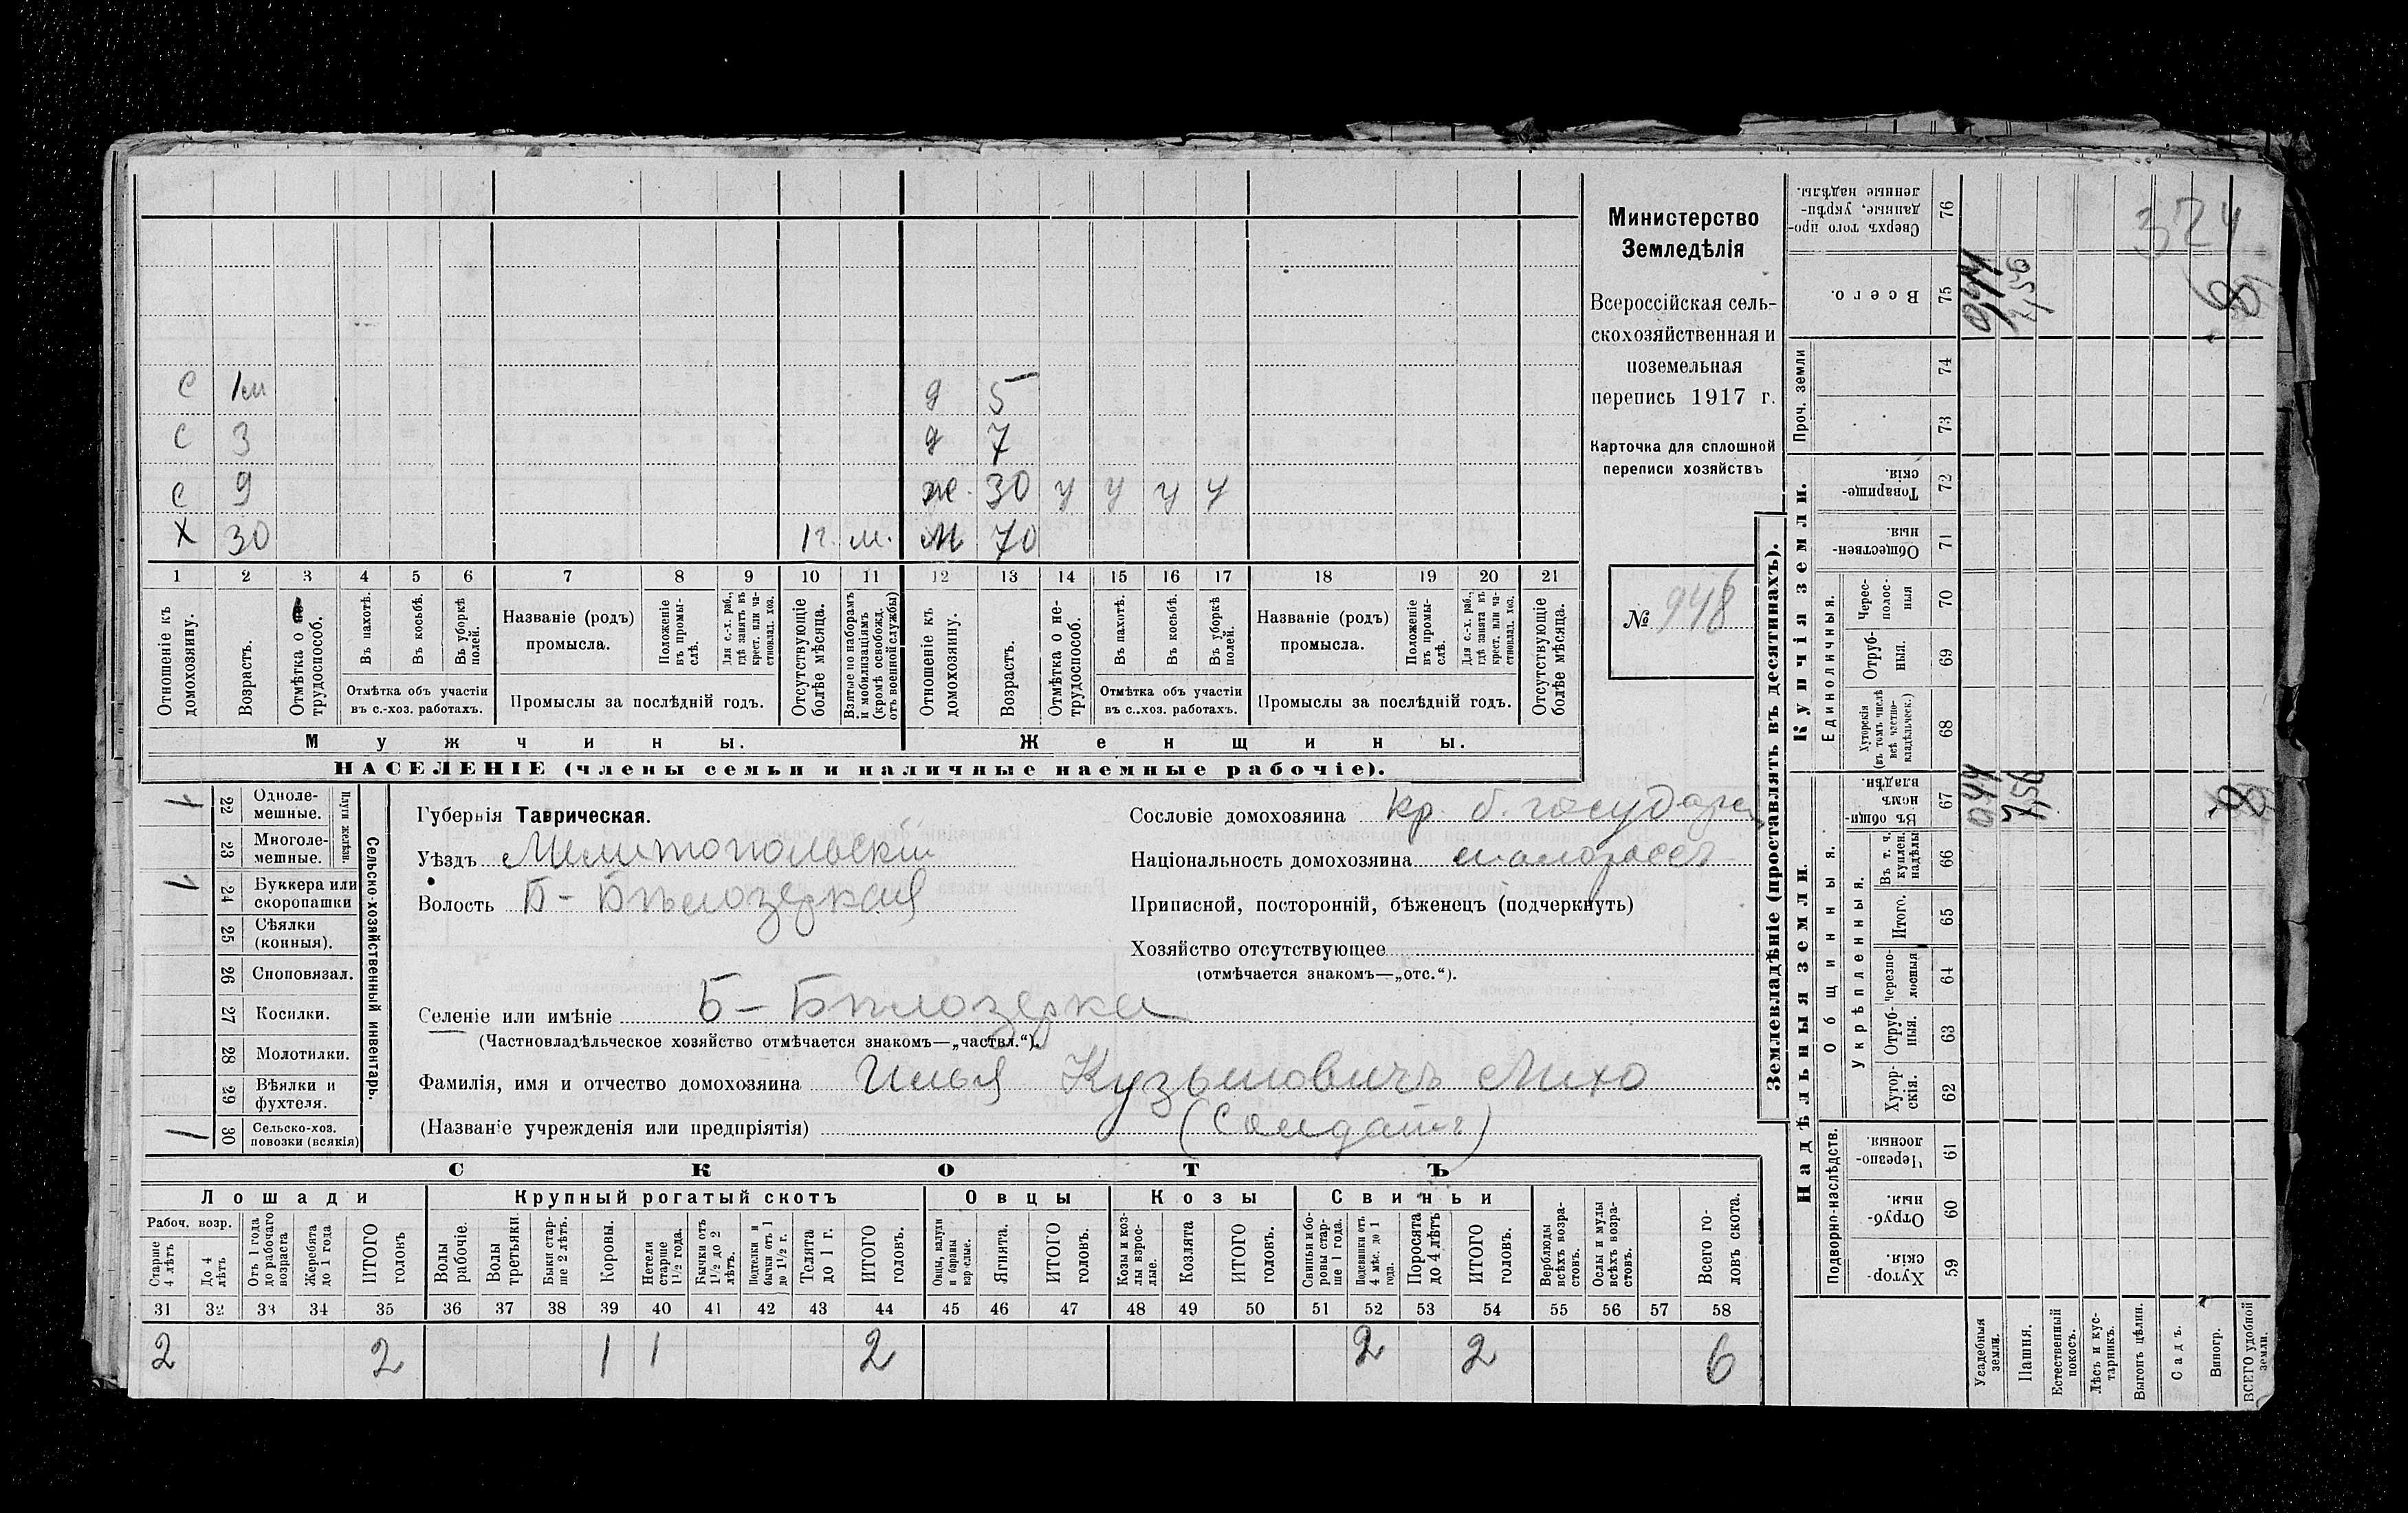 Министерство
Земледѣлія
Всероссійская сель-
скохозяйственная и
поземельная
перепись 1917 г.
Карточка для сплошной
переписи хозяйствъ
№ 948
324
С 1м д 5
С 3 д 7
С 9 ж. 30 у у у у
Х 30 1г. м. М 70
1 2 3 4 5 6 7 8 9 10 11 12 13 14 15 16 17 18 19 20 21
Отношеніе къ домохозяину.
Возрастъ.
Отмѣтка о трудоспособ.
Въ пахотѣ.
Въ косьбѣ.
Въ уборкѣ полей.
Отмѣтка объ участіи
въ с.-хоз. работахъ.
Названіе (родъ)
промысла.
Положеніе въ промы-слѣ.
Для с.-х. раб., гдѣ занятъ въ крест. или ча-стновлад. хоз.
Промыслы за послѣдній годъ.
Отсутствующіе болѣе мѣсяца.
Взятые по наборамъ и мобилизаціямъ (кромѣ освобожд. отъ военной службы)
Отношеніе къ домохозяину.
Возрастъ.
Отмѣтка о не-трудоспособ.
Въ пахотѣ.
Въ косьбѣ.
Въ уборкѣ полей.
Отмѣтка объ участіи
въ с..хоз. работахъ.
Названіе (родъ)
промысла.
Положеніе въ промы-слѣ.
Для с.-х. раб., гдѣ занята въ крест. или ча-стновлад. хоз.
Промыслы за послѣдній годъ.
Отсутствующіе болѣе мѣсяца.
Мужчины. Женщины.
НАСЕЛЕНІЕ (члены семьи и наличные наемные рабочіе).
1 22 Одноле-мешные.
23 Многоле-мешные.
Плуги желѣзн.
1 24 Буккера или скоропашки
25 Сѣялки (конныя).
26 Сноповязал.
27 Косилки.
28 Молотилки.
29 Вѣялки и фухтеля.
1 30 Сельско-хоз. повозки (всякія)
Сельско-хозяйственный инвентарь.
Губернія Таврическая.
Уѣздъ Мелитопольскій
Волость Б-Бѣлозеркая
Селеніе или имѣніе Б-Бѣлозерка
(Частновладѣльческое хозяйство отмѣчается знакомъ—„частвл.“).
Фамилія, имя и отчество домохозяина Илья Кузьмовичъ Лихо
(Названіе учрежденія или предпріятія) (Солдатъ)
Сословіе домохозяина кр. б. государ
Національность домохозяина малороссъ
Приписной, посторонній, бѣженецъ (подчеркнуть)
Хозяйство отсутствующее
(отмѣчается знакомъ—„отс.“).
СКОТЪ
Лошади Крупный рогатый скотъ Овцы Козы Свиньи
Рабоч. возр.
Старше 4 лѣтъ
До 4 лѣтъ
Отъ 1 года до рабочаго возраста
Жеребята до 1 года
ИТОГО головъ
Волы рабочіе.
Волы третьяки.
Быки стар-ше 2 лѣтъ.
Коровы.
Нетели старше 1½ года.
Бычки отъ 1½ до 2 лѣтъ.
Подтелки и бычки отъ 1 до 1½ г.
Телята до 1 г.
ИТОГО головъ.
Овцы, валухи и бараны взрослые.
Ягнята.
ИТОГО головъ.
Козы и коз-лы взрос-лые.
Козлята
ИТОГО головъ.
Свиньи и бо-ровы стар-ше 1 года.
Подсвинки отъ 4 мѣс. до 1 года.
Поросята до 4 лѣтъ
ИТОГО головъ.
Верблюды всѣхъ возра-стовъ.
Ослы и мулы всѣхъ возра-стовъ.
Всего го-ловъ скота.
31 32 33 34 35 36 37 38 39 40 41 42 43 44 45 46 47 48 49 50 51 52 53 54 55 56 57 58
2 2 1 1 2 2 2 6
Землевладѣніе (проставлять въ десятинахъ).
Надѣльныя земли. Купчія земли. Проч. земли
Подворно-наслѣдств.
Общинныя.
Укрѣпленныя.
Единоличныя.
59 Хутор-скія.
60 Отруб-ныя.
61 Черезпо-лосныя.
62 Хутор-скія.
63 Отруб-ныя.
64 Черезпо-лосныя
65 Итого.
66 Въ т. ч. куплен. надѣлы
67 Въ общи-номъ владѣн.
68 Хуторскія (въ томъ числѣ всѣ частно-владѣльческ.)
69 Отруб-ныя.
70 Черес-полос-ныя
71 Обществен-ныя
72 Товарище-скія.
73
74
75 Всего.
76 Сверхъ того про-данные, укрѣп-ленные надѣлы.
Усадебныя земли.
Пашня.
Естественный покосъ.
Лѣсъ и кус-тарникъ.
Выгонъ цѣлин.
Садъ.
Виногр.
ВСЕГО удобной земли.
0,44 7,56 8
0,44 7,56 8